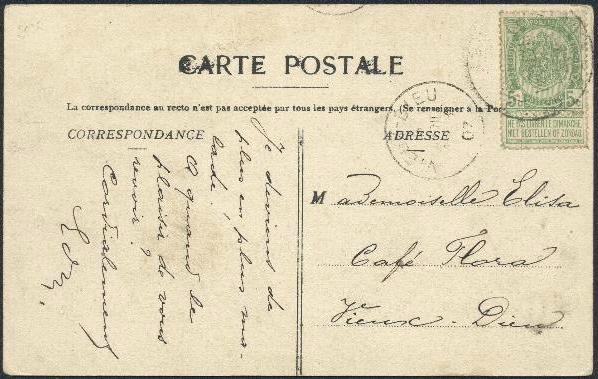 CARTE POSTALE
La correspondance au recto n'est pas acceptée par tous les pays étrangers. (Se renseigner à la Pos
CORRESPONDANCE
ADRESSE
Je deviens de
plus en plus ma-
lade!
A quand le
plaisir de vous
revoir?
Cordialement
Mademoiselle Elisa
Café Flora
Vieux-Dieu
VIEUX-DIEU
5c 5c
NE PAS LIVRER LE DIMANCHE
NIET BESTELLEN OP ZONDAG